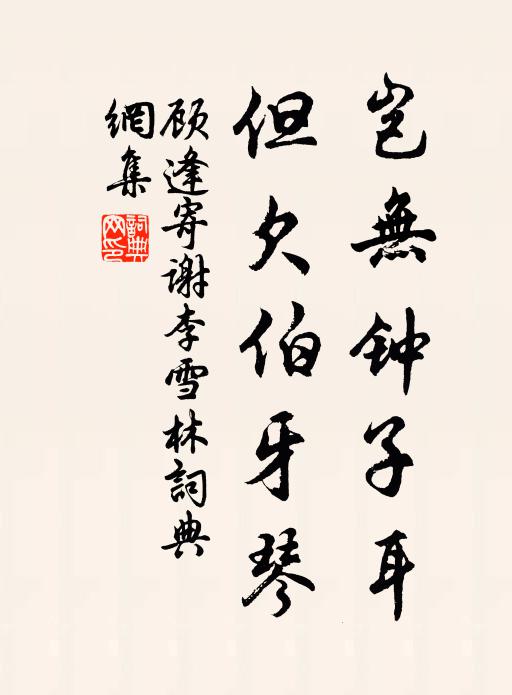 岂無钟子耳
但欠伯牙琴
顾逢寄谢李雪林詞典
網集
詞典网印